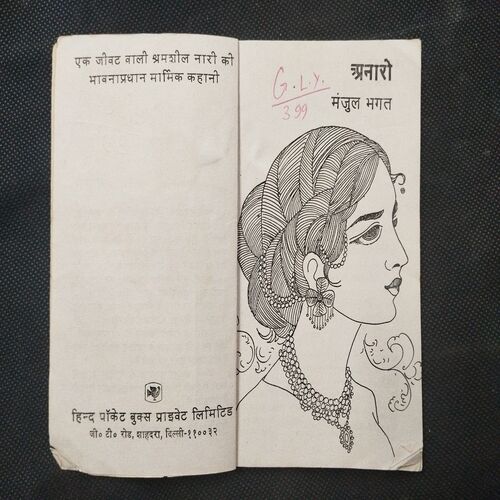 एक जीवट वाली श्रमशील नारी की
भावनाप्रधान मार्मिक कहानी
हिन्द पॉकेट बुक्स प्राइवेट लिमिटिड
जी० टी० रोड, शाहदरा, दिल्ली-११००३२
G.L.Y.
399
अनारो
मंजुल भगत